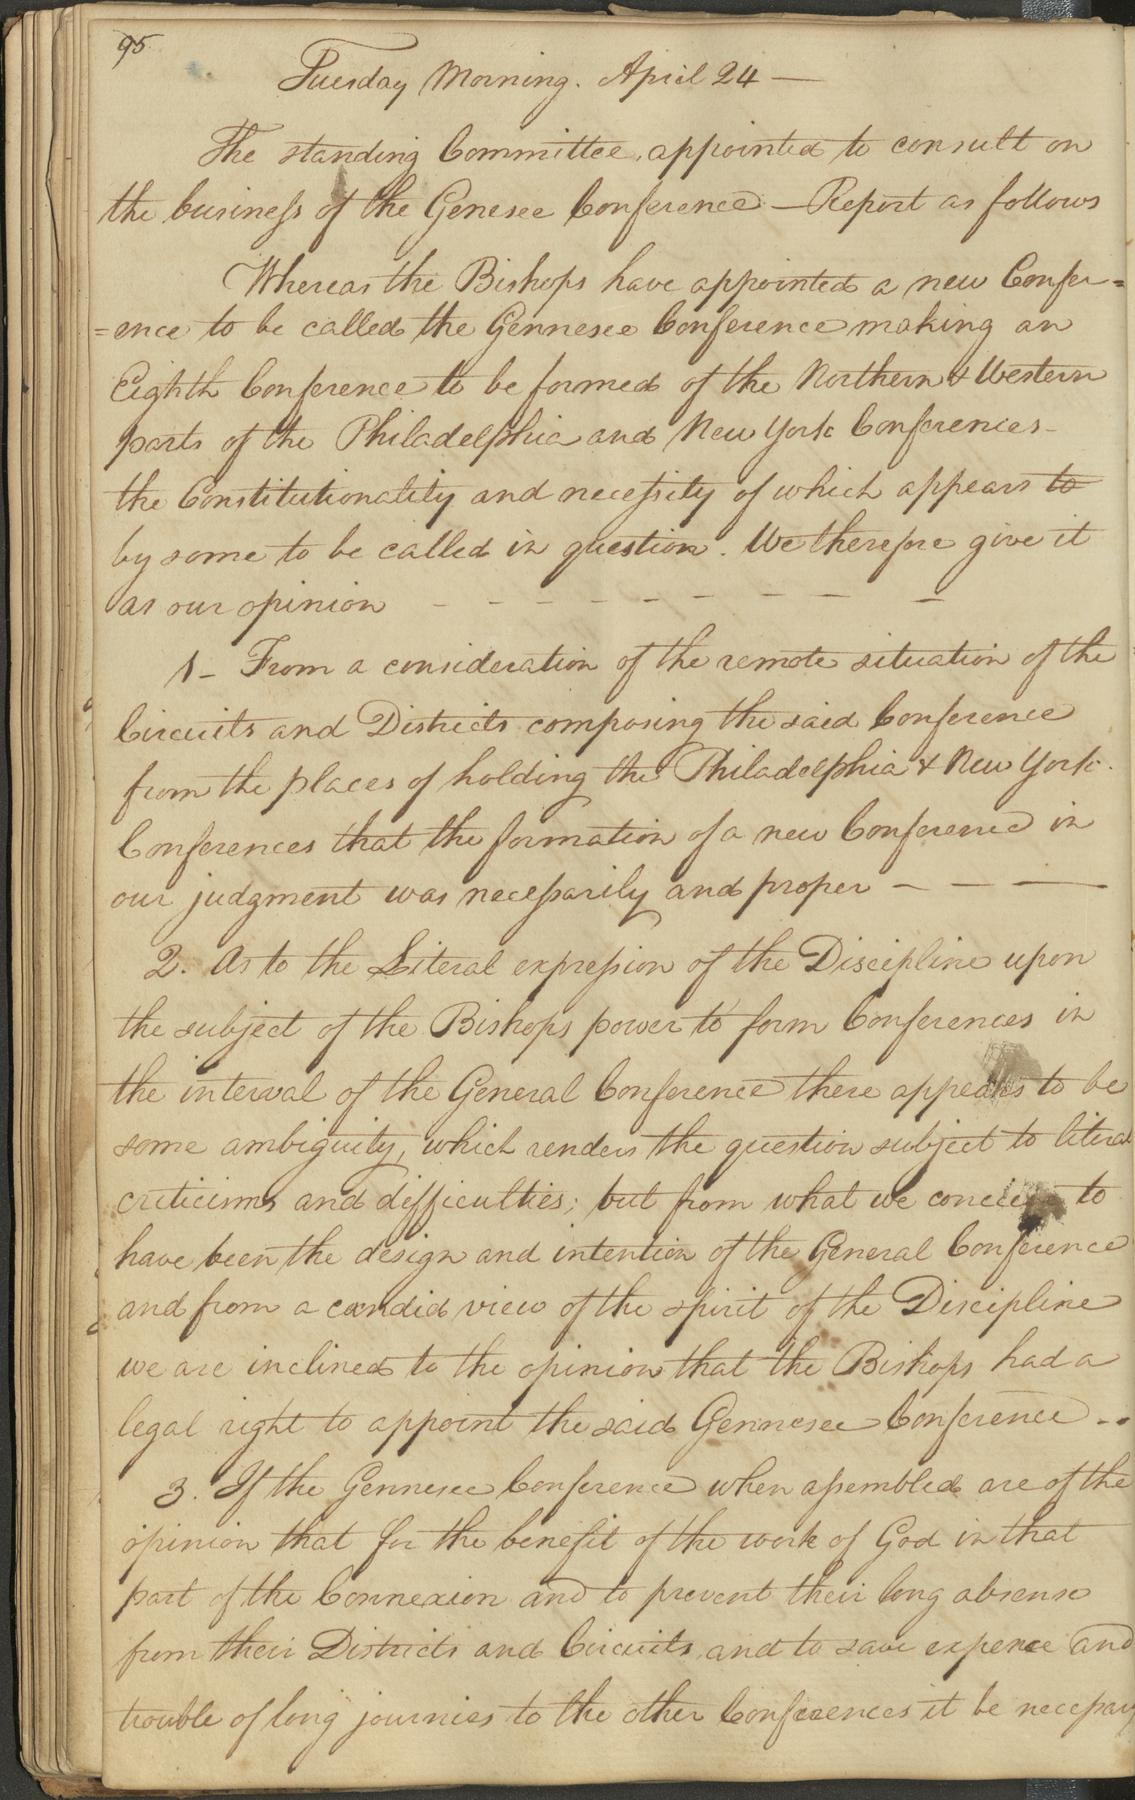 95
Tuesday Morning. April 24 —
The standing Committee, appointed to consult on
the business of the Genesee Conference — Report as follows
Whereas the Bishops have appointed a new Confer=
=ence to be called the Gennesee Conference making an
Eighth Conference to be formed of the Northern & Western
parts of the Philadelphia and New York Conferences-
the Constitutionality and necessity of which appears to
by some to be called in question. We therefore give it
as our opinion - - - - - - - - -
1- From a consideration of the remote situation of the
Circuits and Districts composing the said Conference
from the places of holding the Philadelphia & New York.
Conferences that the formation of a new Conference in
our judgment was necessarily and proper - — —
2. As to the Literal expression of the Discipline upon
the subject of the Bishops power to form Conferences in
the interval of the General Conference there appears to be
some ambiguity, which renders the question subject to literal
criticisms and difficulties; but from what we conceive to
have been the design and intention of the General Conference
and from a candid view of the spirit of the Discipline
we are inclined to the opinion that the Bishops had a
legal right to appoint the said Gennesee Conference - -
3. If the Gennesee Conference when assembled are of the
opinion that for the benefit of the work of God in that
part of the Connexion and to prevent their long absense
from their Districts and Circuits, and to save expence and
trouble of long journies to the other Conferences it be necessary